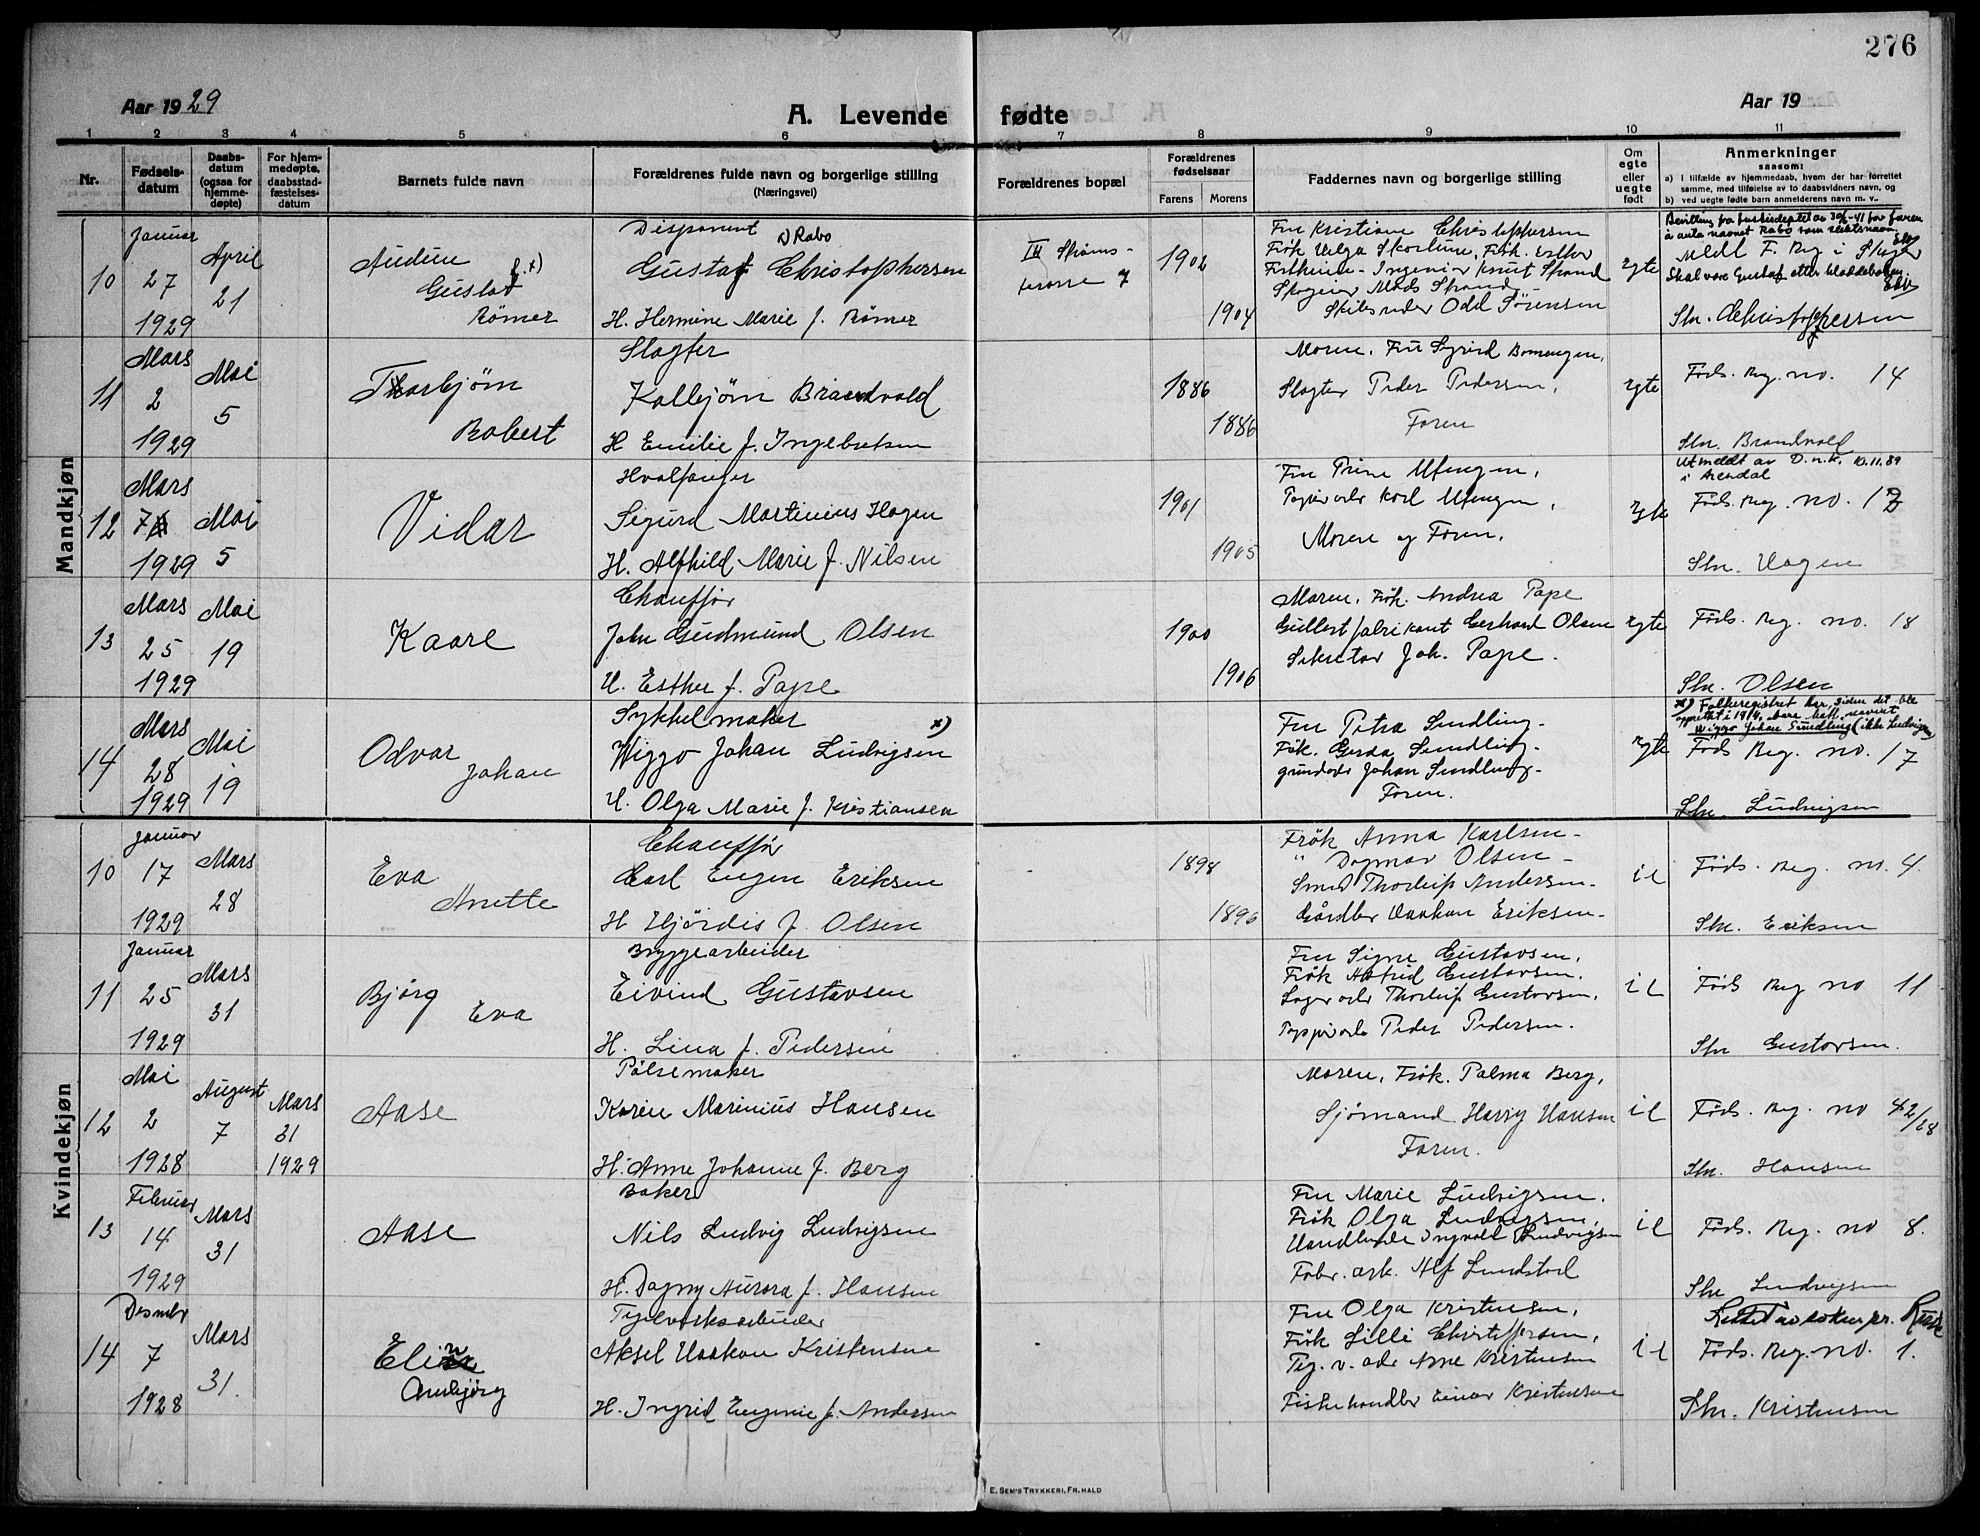 276
Aar 1929
A. Levende fødte
Aar 19
1 2 3 4 5 6 7 8 9 10 11
Nr.
Fødsels-
datum
Daabs-
datum
(ogsaa for
hjemme-
døpte)
For hjem-
medøpte,
daabsstad-
fæstelses-
datum
Barnets fulde navn
Forældrenes fulde navn og borgerlige stilling
(Næringsvei)
Forældrenes bopæl
Forældrenes
fødselsaar
Farens Morens
Faddernes navn og borgerlige stilling
Om
egte
eller
uegte
født
Anmerkninger
saasom:
a) I tilfælde av hjemmedaab, hvem der har forrettet
samme, med tilføielse av to daabsvidners navn, og
b) ved uegte fødte barn anmelderens navn m. v.
Mandkjøn
10
Januar
27
1929
April
21
Audun
Gustav f. x)
Rømer
Disponent
Rabo
Gustaf Christophersen
H. Hermine Marie f. Rømer
III Strøms-
terasse 7
1902
1904
Fru Kristiane Christophersen
Frøk Helga Skorlune, Frøk. Esther
Ingeniør Knut Strand
Skogeier Mads Strand
Skibsreder Odd Sørensen
egte
Bevilling fra Justisdeptet av 30/6-41 for faren
å anta navnet Rabo som slektsnavn.
Meld F. Reg i Skoger
Skal være Gustaf etter kladdeboken.
Shr. Christophersen
11
Mars
2
1929
Mai
5
Thorbjørn
Robert
Slagter
Kolbjørn Brandvold
H Emilie f. Ingebretsen
1886
1886
Moren, Fru Sigrid Bomengen,
Slagter Peder Pedersen,
Faren
egte
Føds. Reg. no. 14
Shr. Brandvold
12
Mars
7
1929
Mai
5
Vidar
Hvalfanger
Sigurd Martinius Hagen
H. Alfhild Marie f. Nilsen
1901
1905
Fru Trine Ufengen,
Papirarb Karl Ufengen,
Moren og Faren.
egte
Utmeldt av D.n.k. 10.11.89
i Arendal
Føds. Reg. no. 13
Shr. Hagen
13
Mars
25
1929
Mai
19
Kaare
Chauffør
John Gudmund Olsen
H. Esther f. Pape
1900
1906
Moren, Frøk. Andrea Pape
Gullistfabrikant Gerhard Olsen
Sekretær Joh. Pape.
egte
Føds. Reg. no. 18
Shr. Olsen
14
Mars
28
1929
Mai
19
Odvar
Johan
Sykkelmaker
Wiggo Johan Ludvigsen x)
H. Olga Marie f. Kristiansen
Fru Petra Sundling-
Frøk. Gerda Sundling-
grundarb Johan Sundling-
Faren.
egte
x) Folkeregistret har, siden det ble
opprettet i 1914, bare hatt navnet
Wiggo Johan Sundling (ikke Ludvigsen)
Føds Reg. no. 17
Shr. Ludvigsen
Kvindekjøn
10
Januar
17
1929
Mars
28
Eva
Anette
Chauffør
Carl Eugen Eriksen
H Hjørdis f. Olsen
1898
1896
Frøk Anna Karlsen-
" Dagmar Olsen-
Smed Thorleif Andersen-
Gårdbr Haakon Eriksen-
il
Føds. Reg. no. 4.
Shr. Eriksen
11
Januar
25
1929
Mars
31
Bjørg
Eva
Bryggearbeider
Eivind Gustavsen
H. Lina f. Pedersen
Fru Signe Gustavsen,
Frøk Astrid Gustavsen.
Lagerarb Thorleif Gustavsen,
Papirarb Peder Pedersen.
il
Føds Reg no 11
Shr Gustavsen.
12
Mai
2
1928
August
7
Mars
31
1929
Aase
Pølsemaker
Karen Marinius Hansen
H. Anne Johanne f. Berg
Moren, Frøk. Palma Berg,
Sjømand Harry Hansen
Faren.
il
Føds. Reg. no 42/28
Shr. Hansen
13
Februar
14
1929
Mars
31
Aase
Baker
Nils Ludvig Ludvigsen
H. Dagny Aurora f. Hansen
Fru Marie Ludvigsen,
Frøk Olga Ludvigsen,
Handlende Ingvald Ludvigsen
Fabr. arb. Alf Lundstad
il
Føds. Reg. no 8.
Shr Ludvigsen
14
Desmbr
7
1928
Mars
31.
Elin
Annbjørg
Teglverksarbeider
Aksel Haakon Kristensen
H. Ingrid Eugenie f. Andersen
Fru Olga Kristensen,
Frøk Lilli Christoffersen,
Teg. v. arb Arne Kristensen
Fiskehandler Einar Kristensen
il
Rettet av sokner.
Føds. Reg. no. 1.
Shr. Kristensen
E. SEM'S TRYKKERI, FR. HALD